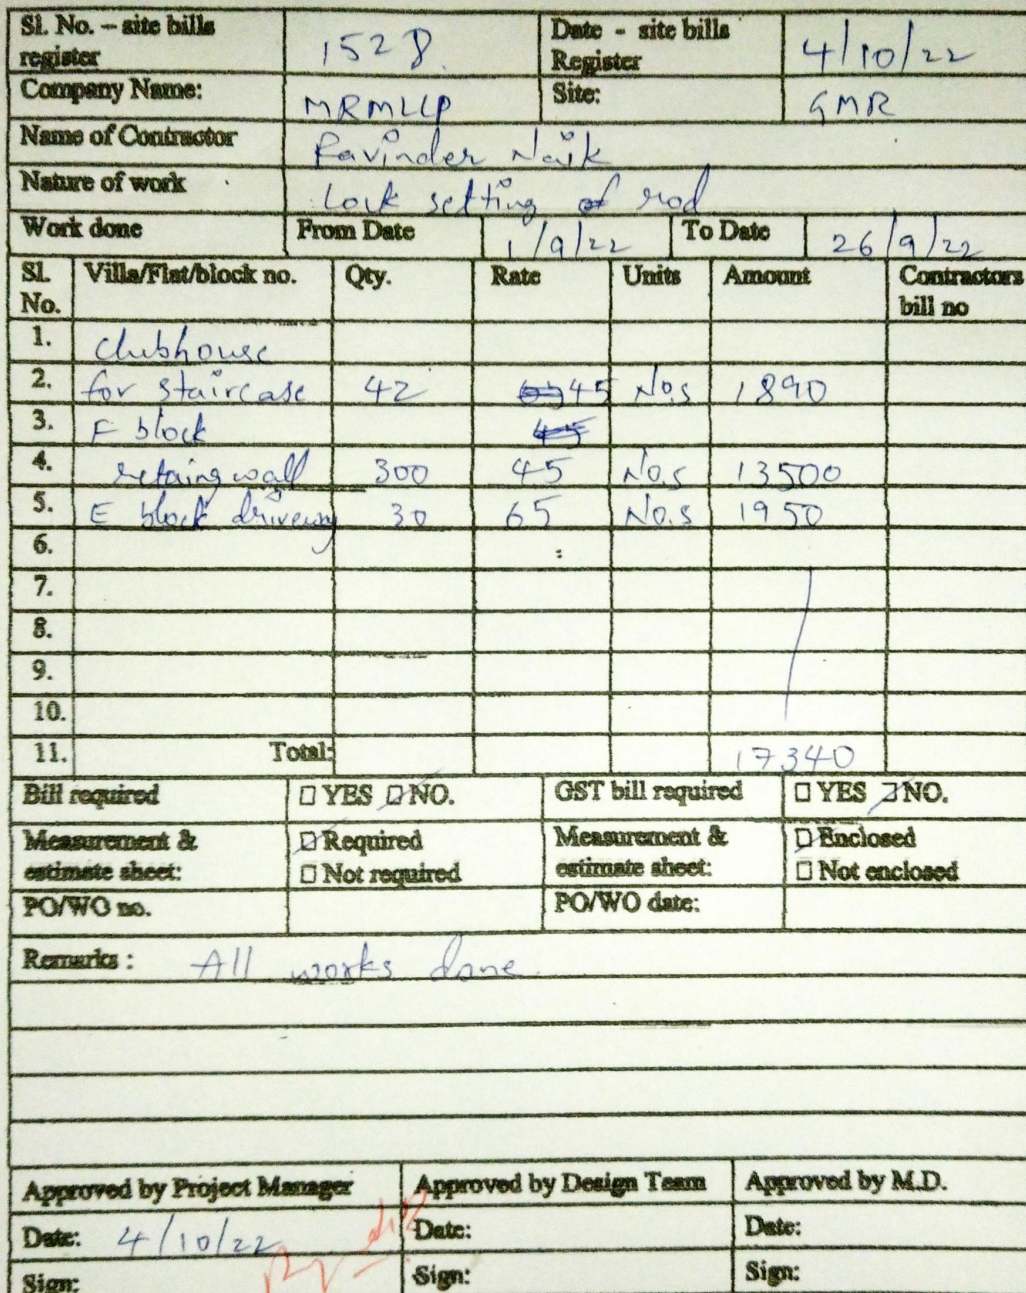 Sl. No. – site bills register 1528 Date - site bills Register 4/10/22
Company Name: MRMLLP Site: GMR
Name of Contractor Ravinder Naik
Nature of work Lock setting of rod
Work done From Date 1/9/22 To Date 26/9/22
Sl. No. Villa/Flat/block no. Qty. Rate Units Amount Contractors bill no
1. clubhouse
2. for staircase 42 45 No.s 1890
3. F block 45
4. retaing wall 300 45 No.s 13500
5. E block driveway 30 65 No.s 1950
6.
7.
8.
9.
10.
11. Total: 17340
Bill required ☐ YES ☐ NO. GST bill required ☐ YES ☐ NO.
Measurement & estimate sheet: ☐ Required ☐ Not required Measurement & estimate sheet: ☐ Enclosed ☐ Not enclosed
PO/WO no. PO/WO date:
Remarks : All works done
Approved by Project Manager Approved by Design Team Approved by M.D.
Date: 4/10/22 Date: Date:
Sign: Sign: Sign: